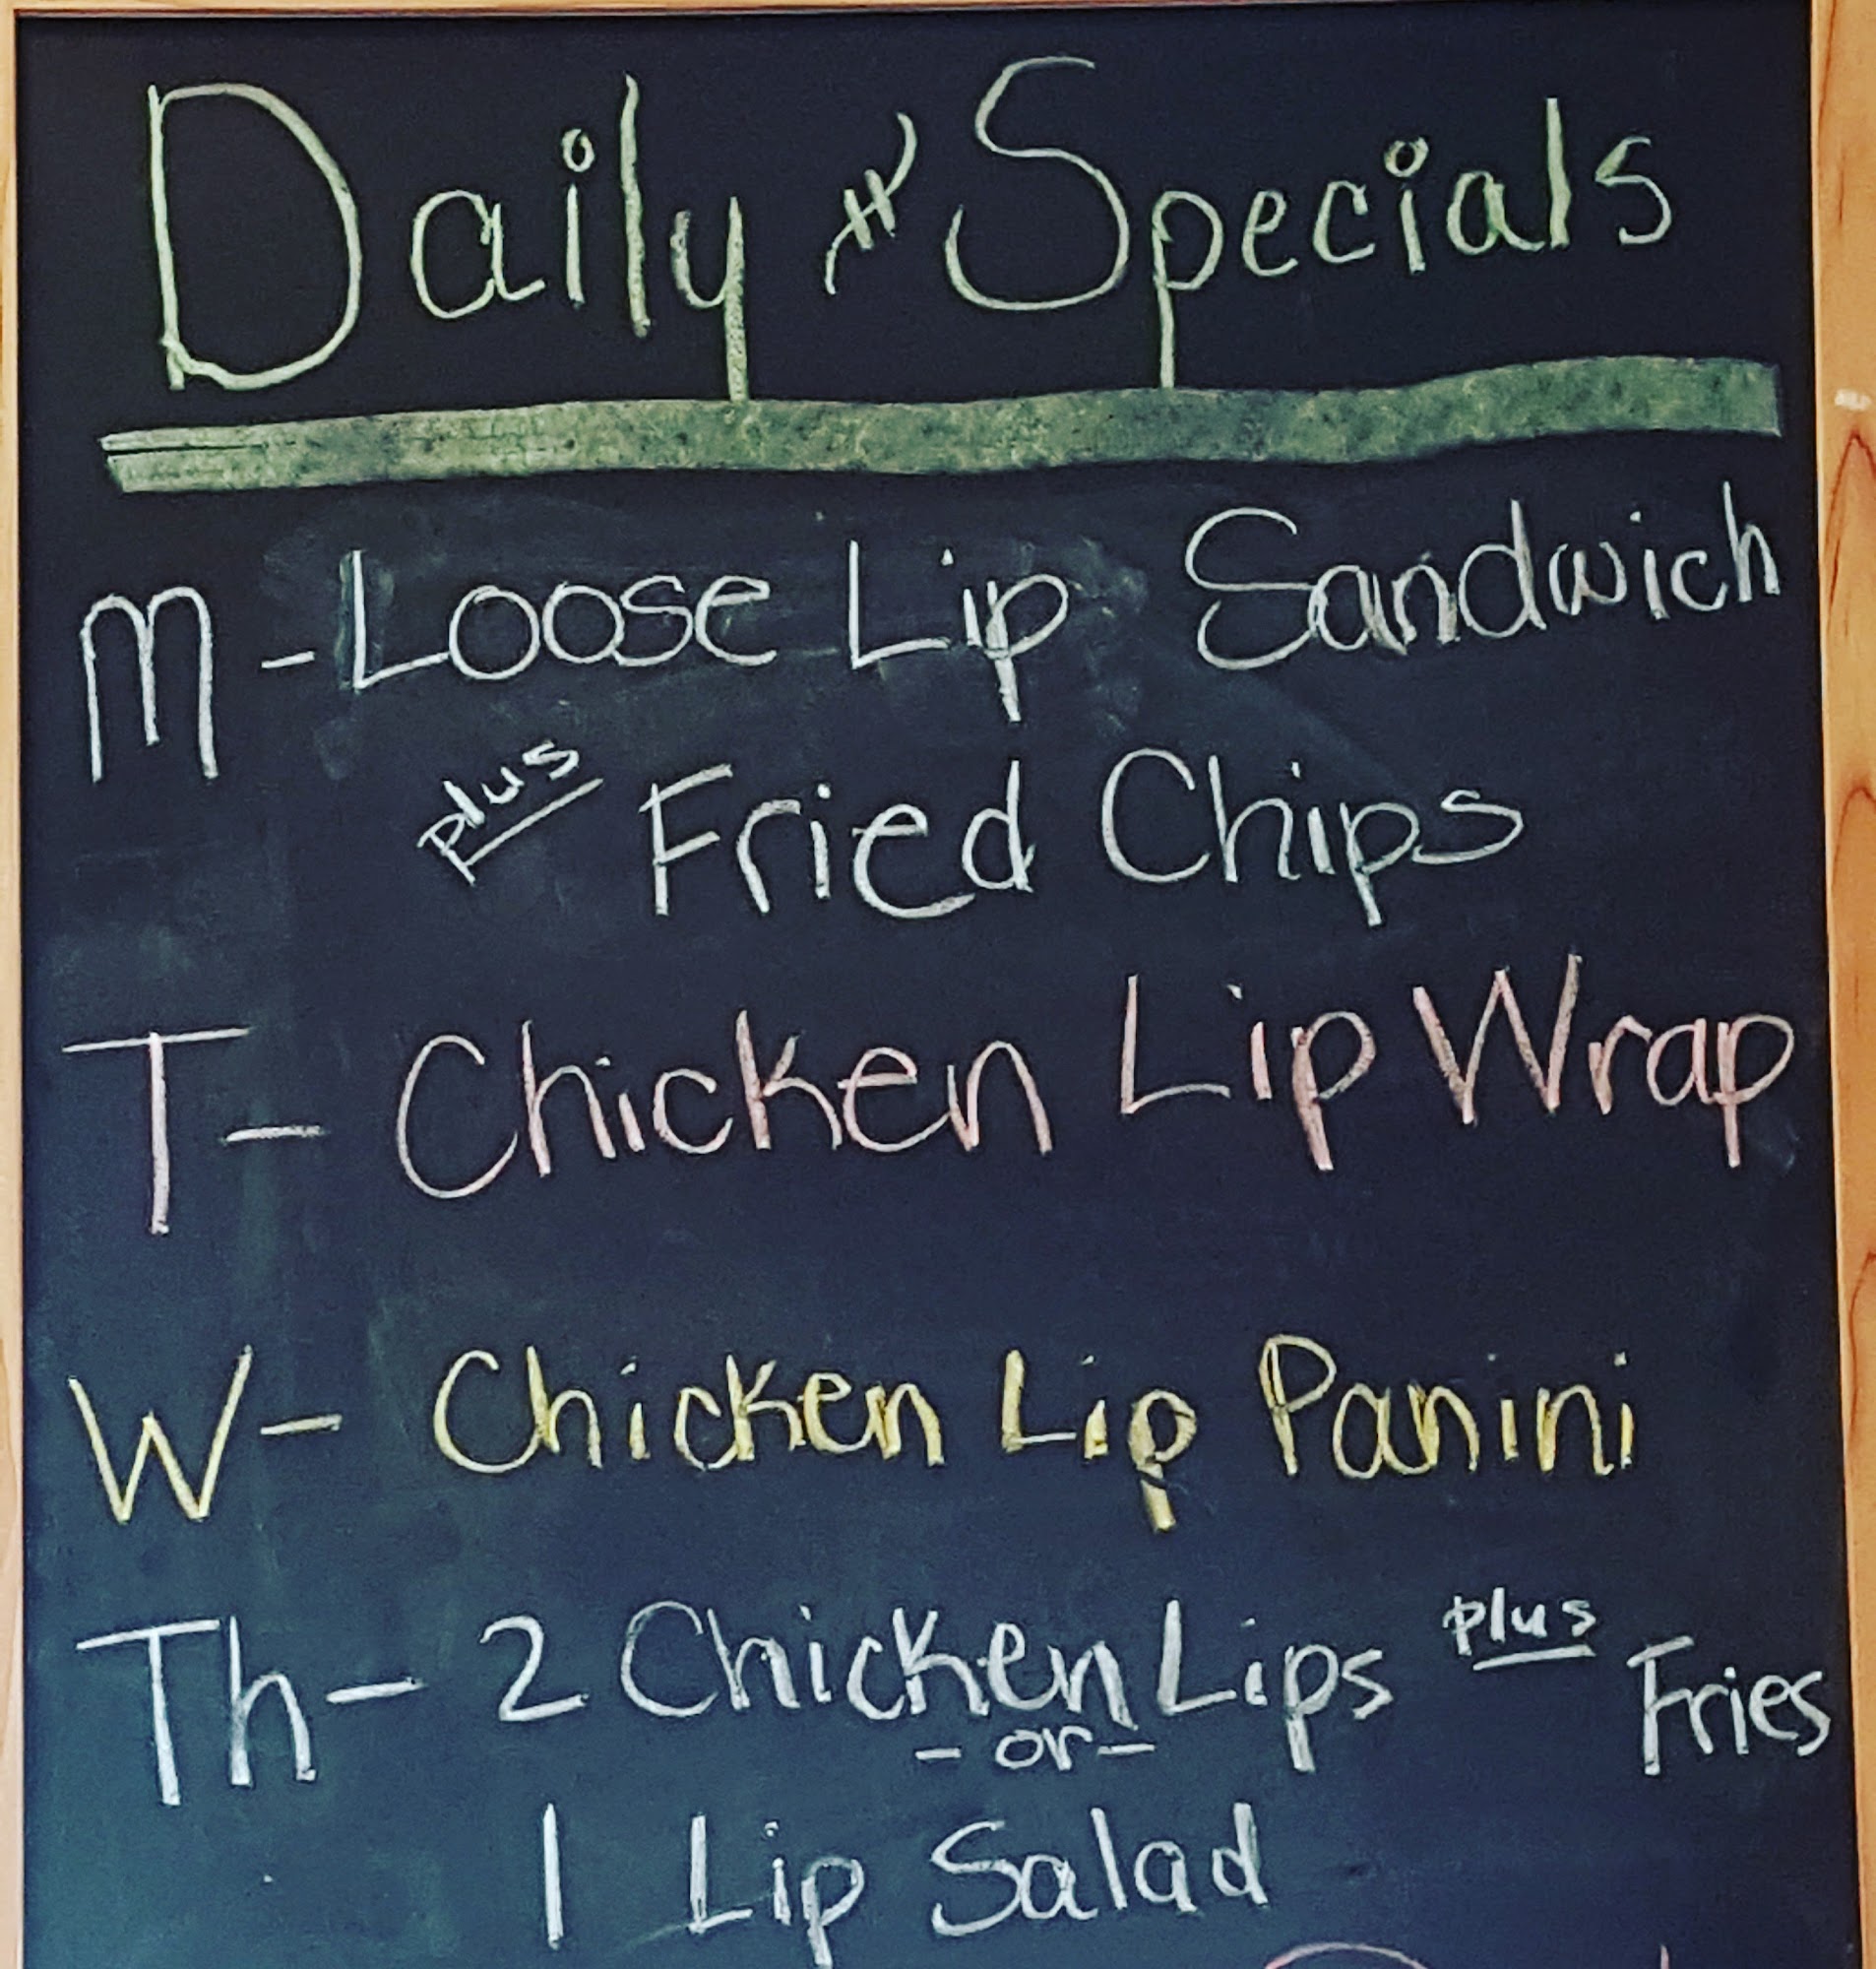 Daily Specials
M - Loose Lip Sandwich
plus Fried Chips
T- Chicken Lip Wrap
W- Chicken Lip Panini
Th- 2 Chicken Lips plus Fries
- or -
1 Lip Salad